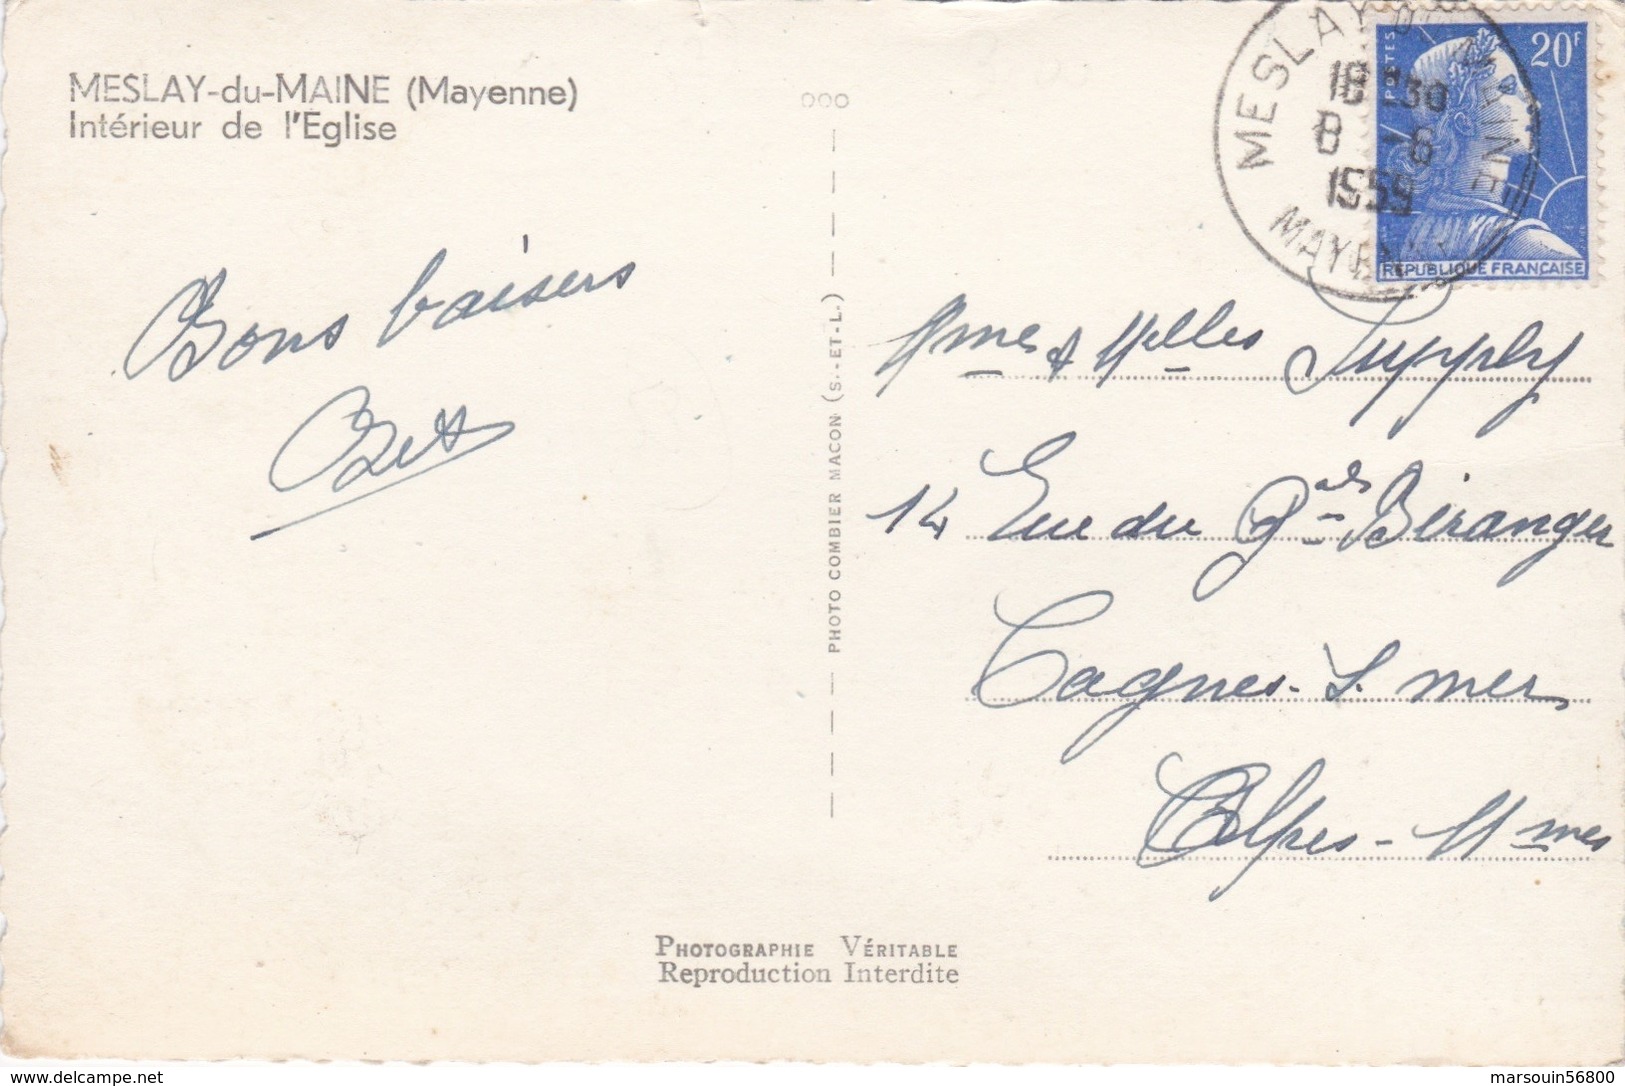 MESLAY-du-MAINE (Mayenne)
Intérieur de l'Eglise
ooo
MESLAY DU MAINE
18 H30
8 -6
1959
MAYENNE
POSTES
20F
REPUBLIQUE FRANÇAISE
Bons baisers
PHOTO COMBIER MACON (S.-ET-L.)
Mmes & Melles Supply
14 Rue du Gals Béranger
Cagnes. s. mer
Alpes-Mmes
PHOTOGRAPHIE VÉRITABLE
Reproduction Interdite
https://www.delcampe.net
marsouin56800